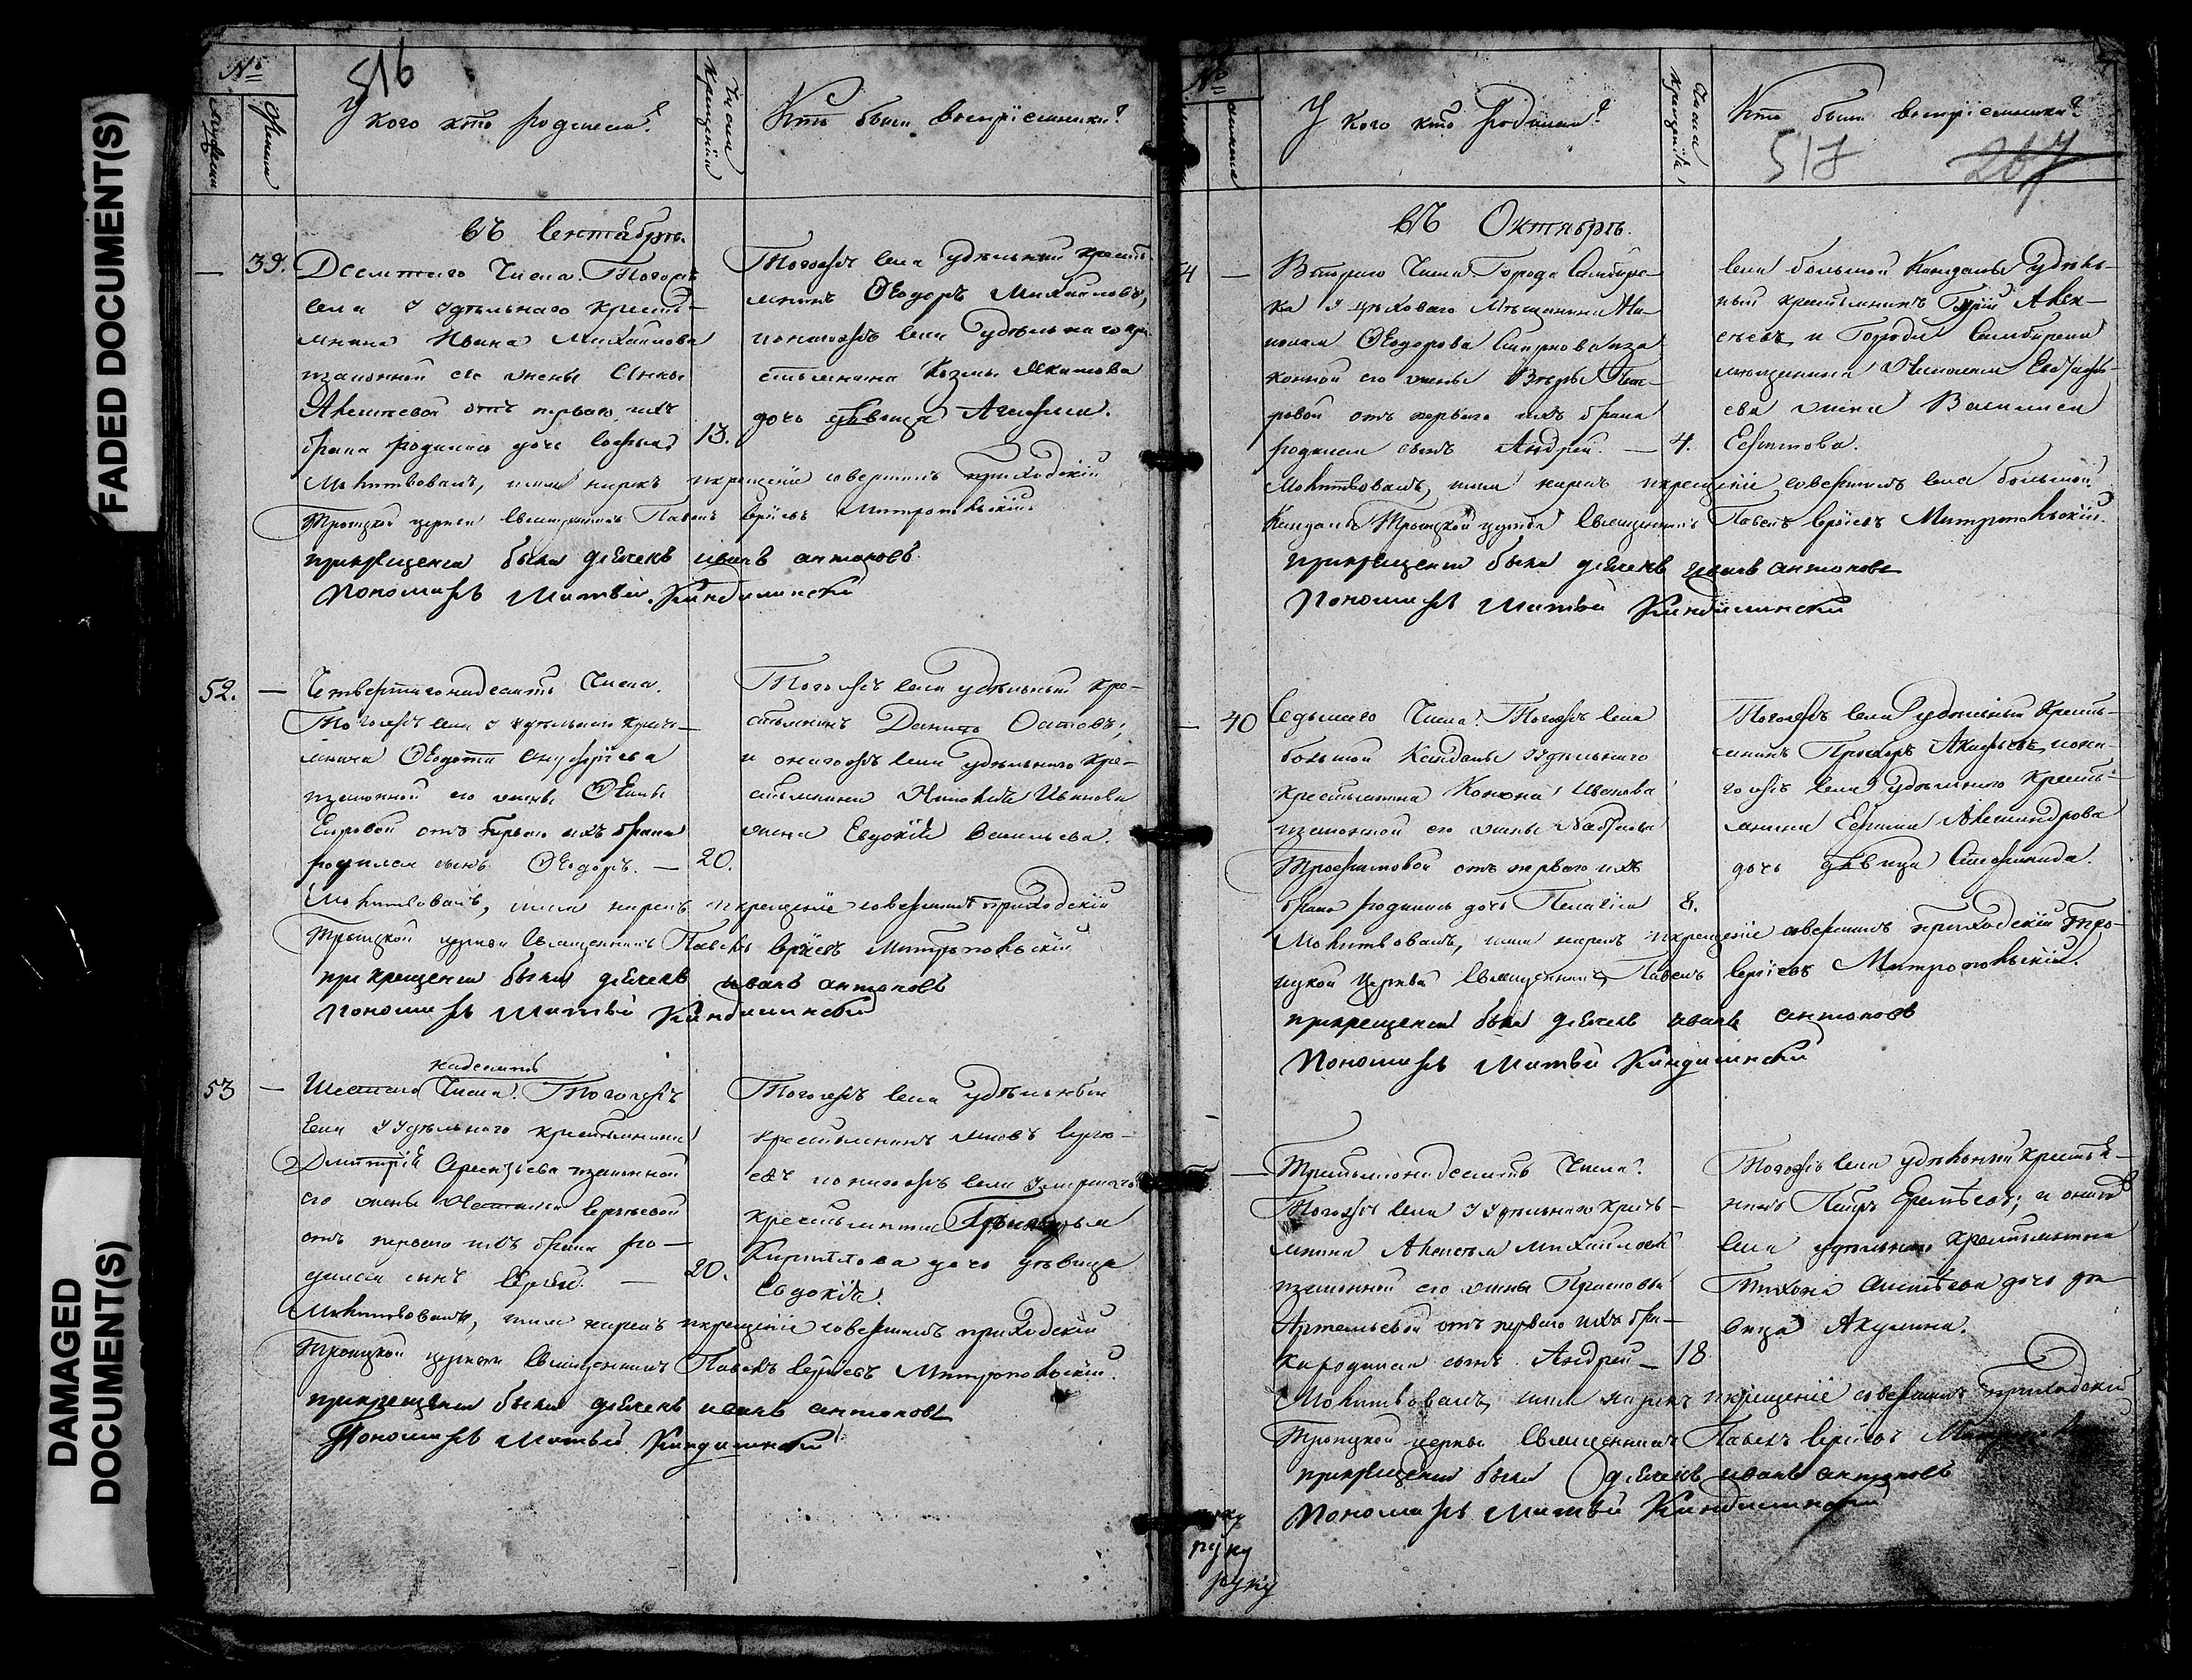 FADED DOCUMENT(S)
DAMAGED DOCUMENT(S)
516
№
У кого кто родился?
Числа крещенія
Кто были воспріемники?
въ Сентябрѣ.
39. Десятаго Числа. Тогожъ
села у удѣльнаго кресть-
янина Ивана Михайлова
изаконной его жены Анны
Алексѣевой отъ перваго ихъ
брака родилась дочь Софья
13.
Тогожъ села удѣльный кресть-
янинъ Ѳеодоръ Михайловъ,
ионагожъ села удѣльнаго кре-
стьянина Козмы Акимова
дочь дѣвица Агафья.
Молитвовалъ, имя нарекъ икрещеніе совершилъ приходскій
Троицкой церкви Священникъ Павелъ Сергіевъ Митропольскій.
прикрещеніи были дьячекъ иванъ антоновъ
Пономарь Матвей Кандалински
52. — Четвертагонадесять Числа.
Тогожъ села у удѣльнаго кресть-
янина Ѳедота Онуфріева
изаконной его жены Ѳеклы
Егоровой отъ перваго ихъ брака
родился сынъ Ѳеодоръ. — 20.
Тогожъ села удѣльный кре-
стьянинъ Данилъ Осиповъ,
и онагожъ села удѣльнаго кре-
стьянина Иванова
жена Евдокія Васильева.
Молитвовалъ, имя нарекъ икрещеніе совершилъ приходскій
Троицкой церкви Священникъ Павелъ Сергіевъ Митропольскій
при крещеніи были дьячекъ иванъ антоновъ
Пономарь Матвей Кандалински
надесять
53 — Шестаго Числа. Тогожъ
села у удѣльнаго крестьянина
Дмитрія Арсентьева изаконной
его жены Настасьи Сергѣевой
отъ перваго ихъ брака ро-
дился сынъ Сергѣй. — 20.
Тогожъ села удѣльный
крестьянинъ Яковъ Сергѣ-
евъ ионагожъ села умершаго
крестьянина
Кириллова дочь дѣвица
Евдокія.
Молитвовалъ, имя нарекъ икрещеніе совершилъ приходскій
Троицкой церкви Священникъ Павелъ Сергіевъ Митропольскій.
прикрещеніи были дьячекъ иванъ антоновъ
Пономарь Матвей Кандалински
№
У кого кто родился?
Числа крещенія
Кто были воспріемники?
517
267
въ Октябрѣ.
54 — Втораго Числа Города Симбирс-
ка у цеховаго Мѣщанина Ни-
колая Ѳеодорова Смирнова иза
конной его жены Вѣры Пет-
ровой отъ перваго ихъ брака
родился сынъ Андрей. — 4.
села большой Кандалы удѣль-
ный крестьянинъ Гурій Алек-
сѣевъ, и Города Симбирска
мѣщанина
жена Василиса
Ефимова.
Молитвовалъ, имя нарекъ икрещеніе совершилъ села большой
Кандалы Троицкой церкви Священникъ Павелъ Сергіевъ Митропольскій.
прикрещеніи были дьячекъ иванъ антоновъ
Пономарь Матвей Кандалински
— 40 Седьмаго Числа. Тогожъ села
большой Кандалы уудѣльнаго
крестьянина Конона Иванова
изаконной его жены
Трофимовой отъ перваго ихъ
брака родилась дочь Пелагія 8.
Тогожъ села удѣльный кресть-
янинъ Прохоръ иона-
гожъ села удѣльнаго кресть-
янина Ефима Александрова
дочь дѣвица Степанида.
Молитвовалъ, имя нарекъ икрещеніе совершилъ приходскій Тро-
ицкой Церкви Священникъ Павелъ Сергіевъ Митропольскій.
прикрещеніи были дьячекъ иванъ антоновъ
Пономарь Матвей Кандалински
55 — Третьягонадесять Числа.
Тогожъ села уудѣльнаго кресть-
янина Алексѣя Михайлова
изаконной его жены Прасковьи
Артемьевой отъ перваго ихъ бра-
ка родился сынъ Андрей — 18
Тогожъ села удѣльный крестья-
нинъ Петръ Еремѣевъ, и онагожъ
села удѣльнаго крестьянина
Тихона Алексѣева дочь дѣ-
вица Акулина.
Молитвовалъ, имя нарекъ икрещеніе совершилъ приходскій
Троицкой церкви Священникъ Павелъ Сергіевъ Митропольскій
прикрещеніи были дьячекъ иванъ антоновъ
Пономарь Матвей Кандалински
руку
руку